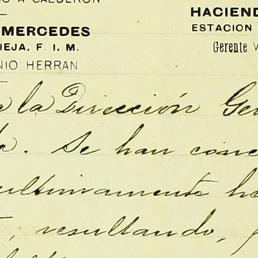 O A CALDERON
HACIEND
MERCEDES
ESTACION
IEJA, F. I. M.
Gerente V
NIO HERRAN
a la Dirección Ge
. Se han conc
ultimamente h
, resultando,